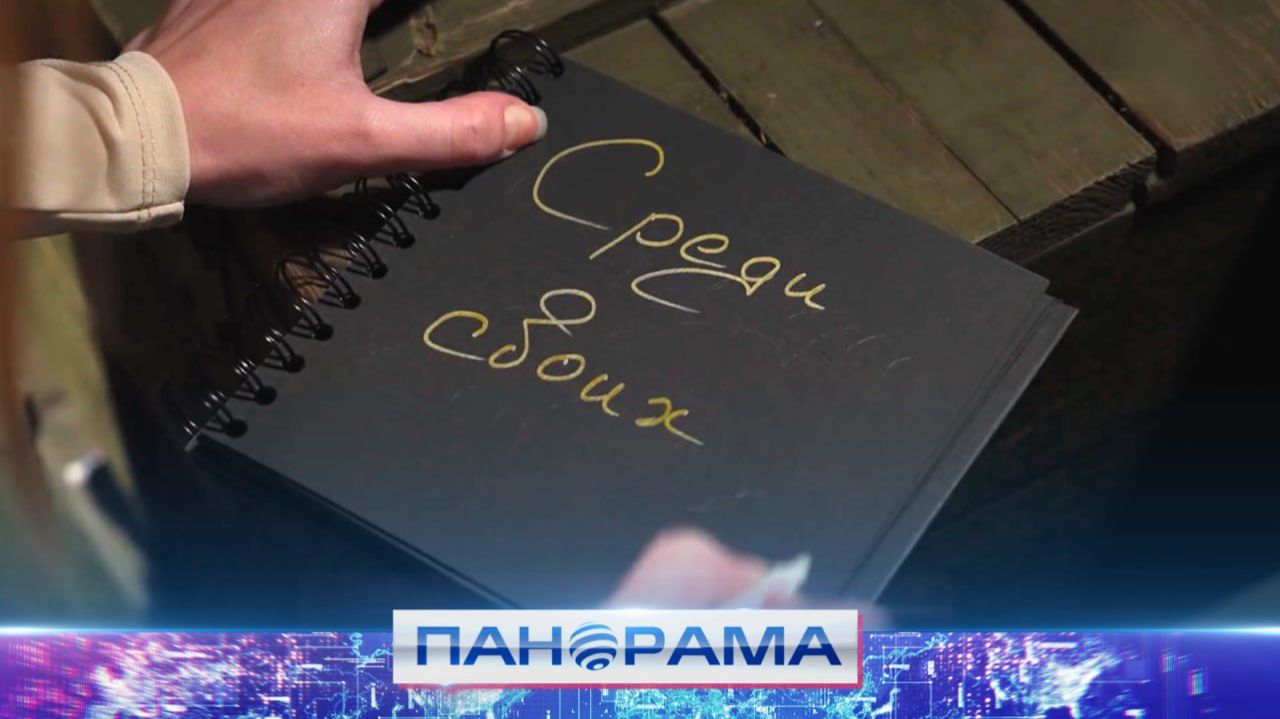 Среди
своих
ПАНОРАМА